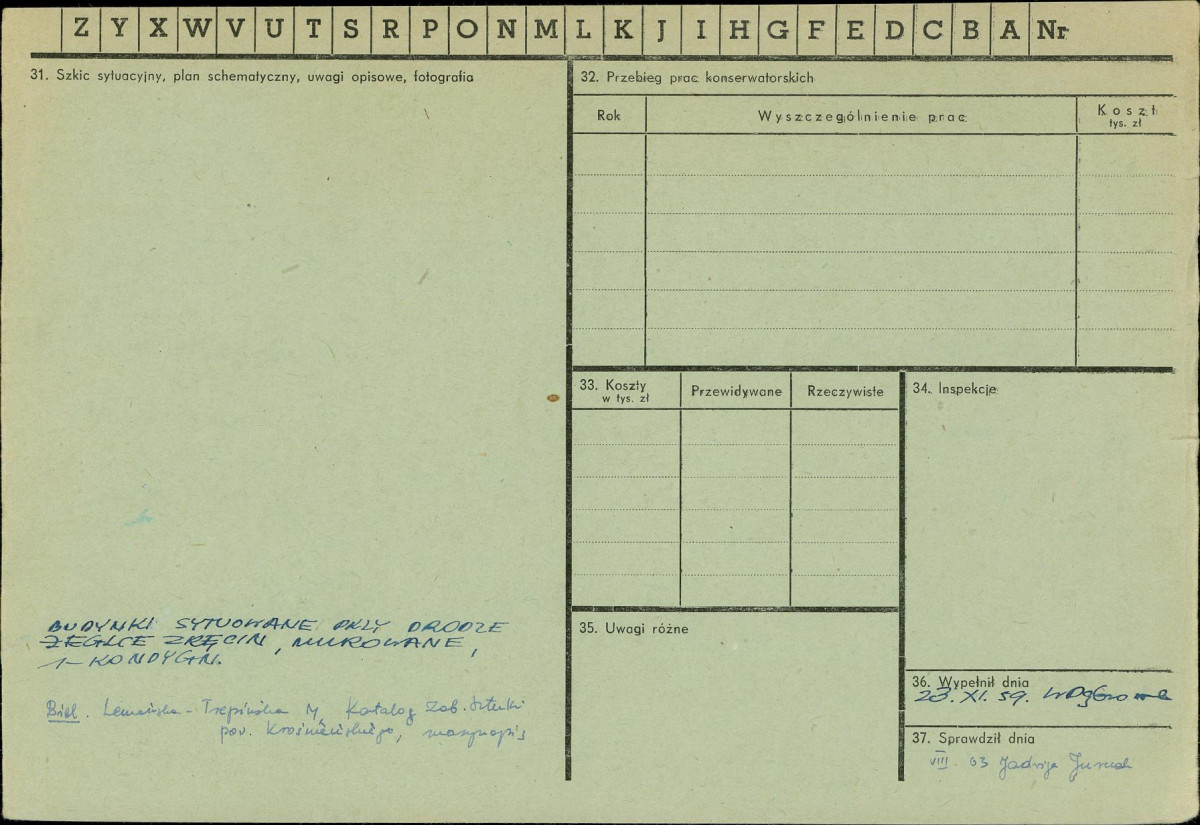 Z Y X W V U T S R P O N M L K J I H G F E D C B A Nr
31. Szkic sytuacyjny, plan schematyczny, uwagi opisowe, fotografia
BUDYNKI SYTUOWANE PRZY DRODZE
ŻEGLCE ZRĘCIN, MUROWANE,
1-KONDYGN.
Bibl. Lemańska-Trepińska M, Katalog zab. sztuki
pow. Krośnieńskiego, maszynopis
32. Przebieg prac konserwatorskich
Rok Wyszczególnienie prac Koszt
tys. zł
33. Koszty Przewidywane Rzeczywiste
w tys. zł
34. Inspekcje
35. Uwagi różne
36. Wypełnił dnia
23. XI. 59.
37. Sprawdził dnia
VIII. 63 Jadwiga